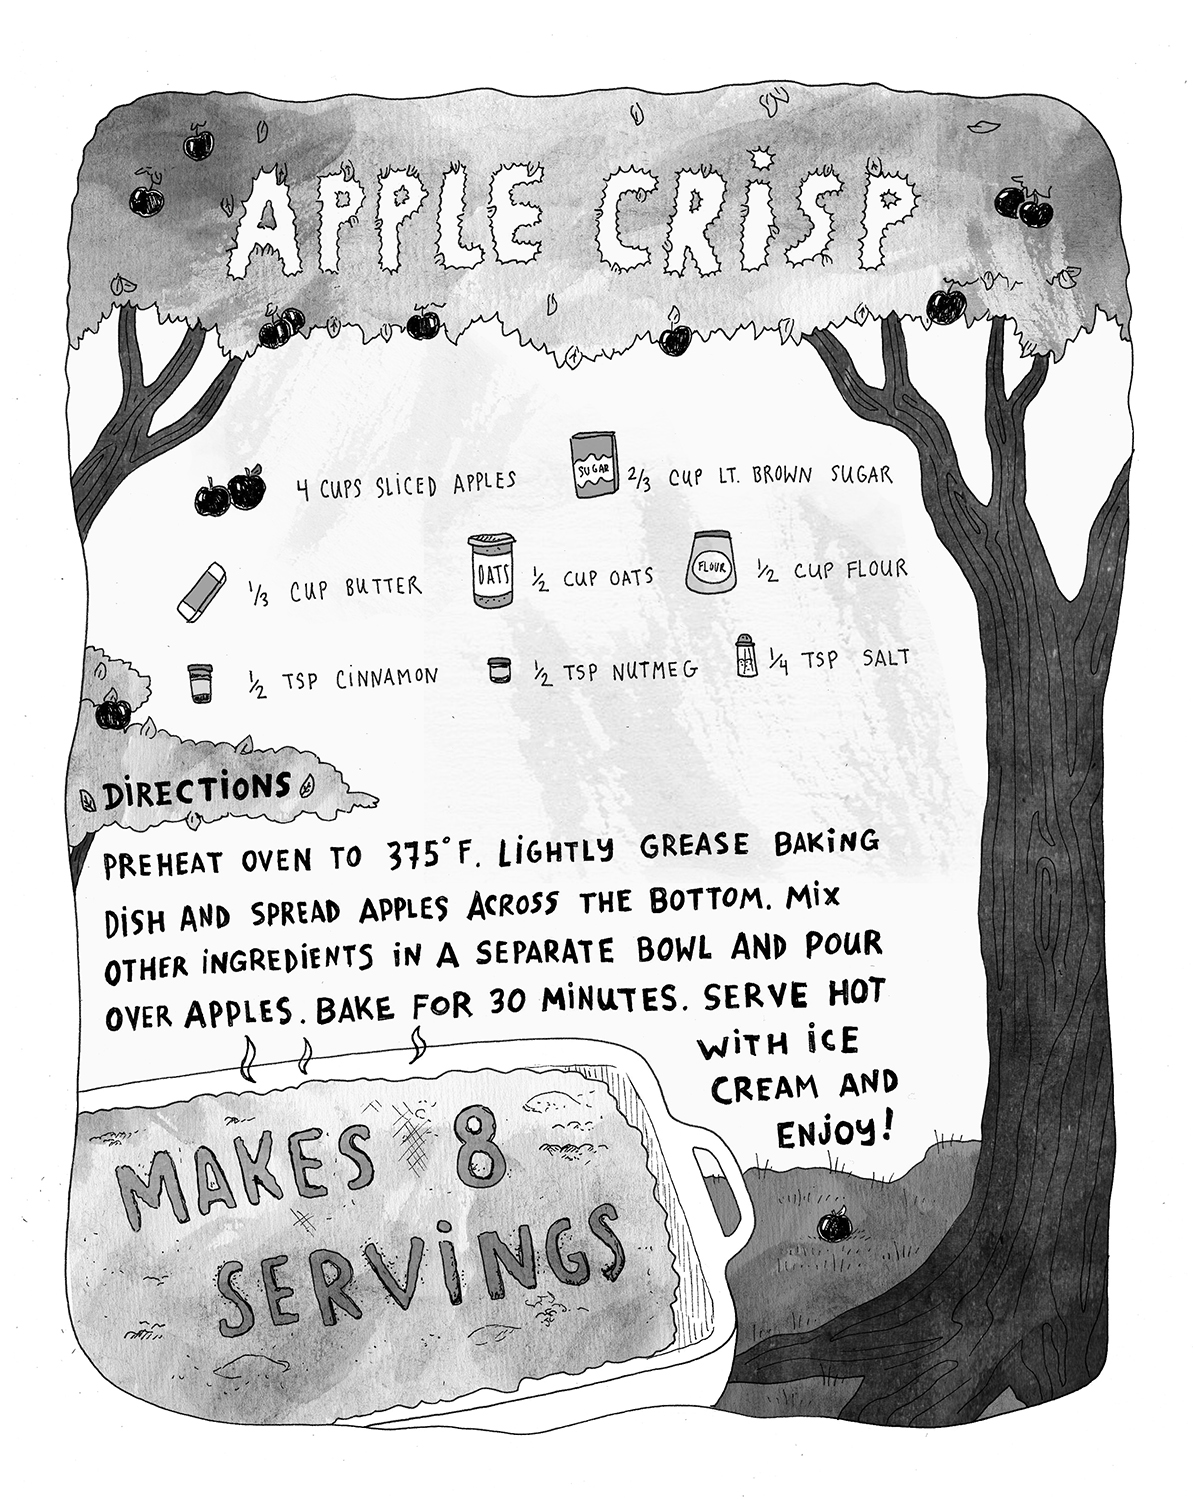 APPLE CRiSP
4 CUPS SLiCED APPLES
SUGAR
2/3 CUP LT. BROWN SUGAR
1/3 CUP BUTTER
OATS
1/2 CUP OATS
FLOUR
1/2 CUP FLOUR
1/2 TSP CiNNAMON
1/2 TSP NUTMEG
1/4 TSP SALT
DiRECTiONS
PREHEAT OVEN TO 375°F. LiGHTLY GREASE BAKiNG
DiSH AND SPREAD APPLES ACROSS THE BOTTOM. MiX
OTHER iNGREDiENTS iN A SEPARATE BOWL AND POUR
OVER APPLES. BAKE FOR 30 MiNUTES. SERVE HOT
WiTH iCE
CREAM AND
ENJOY!
MAKES 8
SERViNGS